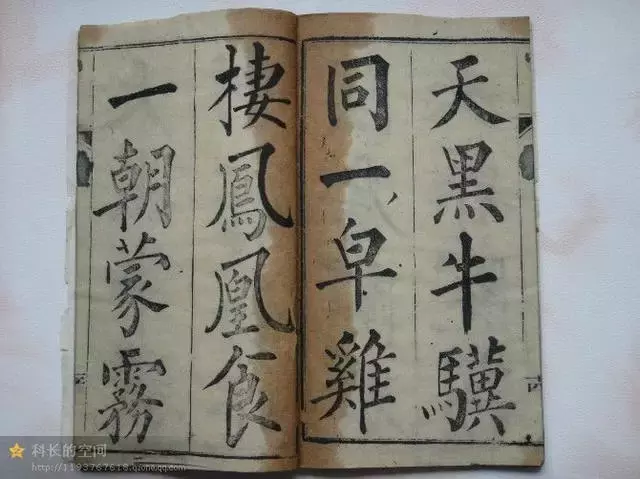 天黑牛驥
同一皁雞
棲鳳凰食
一朝蒙霧
科长的空间
http://1193767618.qzone.qq.com